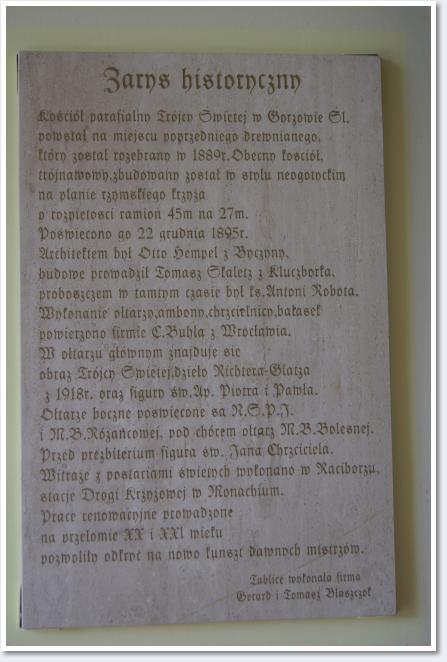 Zarys historyczny
Kościół parafialny Trójcy Świetej w Gorzowie Śl.
powstał na miejscu poprzedniego drewnianego,
który zostal rozebrany w 1889r. Obecny kościół,
trójnawowy, zbudowany zostal w stylu neogotyckim
na planie rzymskiego krzyża
o rozpietości ramion 45m na 27m.
Poświecono go 22 grudnia 1895r.
Architektem byl Otto Hempel z Byczyny,
budowe prowadził Tomasz Skaletz z Kluczborka,
proboszczem w tamtym czasie byl ks. Antoni Robota.
Wykonanie ołtarzy, ambony, chrzcielnicy, balasek
powierzono firmie C. Buhla z Wrocławia.
W ołtarzu głównym znajduje sie
obraz Trójcy Świetej, dzieło Richtera-Glatza
z 1918r. oraz figury św. Ap. Piotra i Pawła.
Ołtarze boczne poświecone sa N.S.P.J.
i M.B. Różańcowej, pod chórem ołtarz M.B. Bolesnej.
Przed prezbiterium figura św. Jana Chrzciciela.
Witraże z postaciami świetych wykonano w Raciborzu,
stacje Drogi Krzyżowej w Monachium.
Prace renowacyjne prowadzone
na przełomie XX i XXI wieku
pozwoliły odkryć na nowo kunszt dawnych mistrzów.
Tablice wykonala firma
Gerard i Tomasz Blaszczok